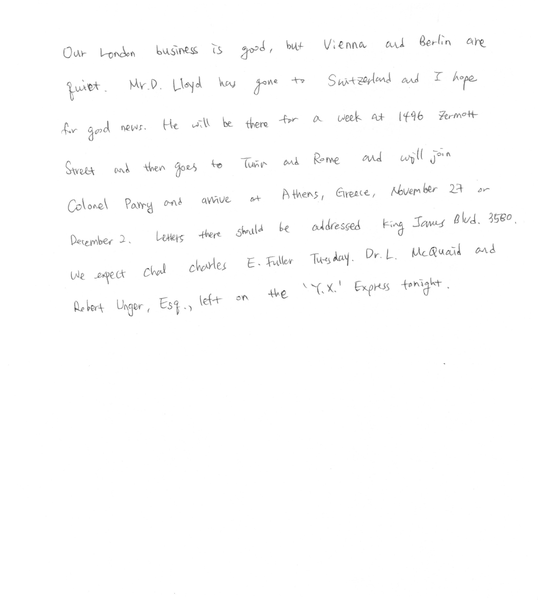 Our London business is good, but Vienna and Berlin are
quiet. Mr. D. Lloyd has gone to Switzerland and I hope
for good news. He will be there for a week at 1496 Zermott
Street and then goes to Turin and Rome and will join
Colonel Parry and arrive at Athens, Greece, November 27 or
December 2. Letters there should be addressed King James Blvd. 3580.
We expect Chal charles E. Fuller Tuesday. Dr. L. McQuaid and
Robert Unger, Esq., left on the 'Y.X.' Express tonight.